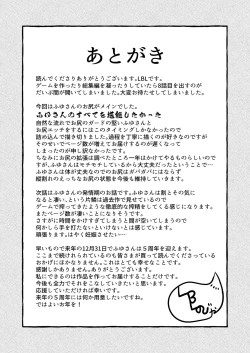 あとがき
読んでくださりありがとうございます。LBLです。
ゲームを作ったり総集編を募ったりしていたら8話目を出すのが
だいぶ間が開いてしまいました。大変お待たせしてしまいました。
今回はふゆさんのお尻がメインでした。
ふゆさんのすべてを堪能したかった
自然な流れでお尻のガードの堅いふゆさんと
お尻エッチをするにはこのタイミングしかなかったので
詰め込んで描き切りました。過程を丁寧に描くのが好きなのですが
そのせいでページ数が増えてお届けするのが遅くなって
しまったのが申し訳なかったです。
ちなみにお尻の拡張は調べたところ一年はかけてやるものらしいので
すが、ふゆさんはモチモチしているから大丈夫だったということで…
ふゆさんは体が丈夫なのでのお尻はガバガバにはならず
縦割れのえっちなお尻の状態を今後も維持していきます。
次話はふゆさんの発情期のお話です。ふゆさんは割とその気に
なると凄い、という片鱗は過去作で見せているので
ゲームで培ってきたような徹底的な搾精をしてくる感じになります。
またページ数が凄いことになりそうです。
さすがに時間をかけすぎてしまうと間が空いてしまうので
何かしら手を打たないといけないとは感じています。
頑張ります。はやく妊娠させたい…
早いもので来年の12月31日でふゆさんは5周年を迎えます。
ここまで続けられているのも皆さまが買って読んでくださっている
おかげにほかなりません。これはとても幸せなことです。
感謝しかありません。ありがとうございます。
私にできるのは作品を作ってお届けすることだけです。
今後も全力でそれをこなしていきたいと思います。
応援していただければ幸いです。
来年の5周年には何か用意したいですね。
ではよいお年を！